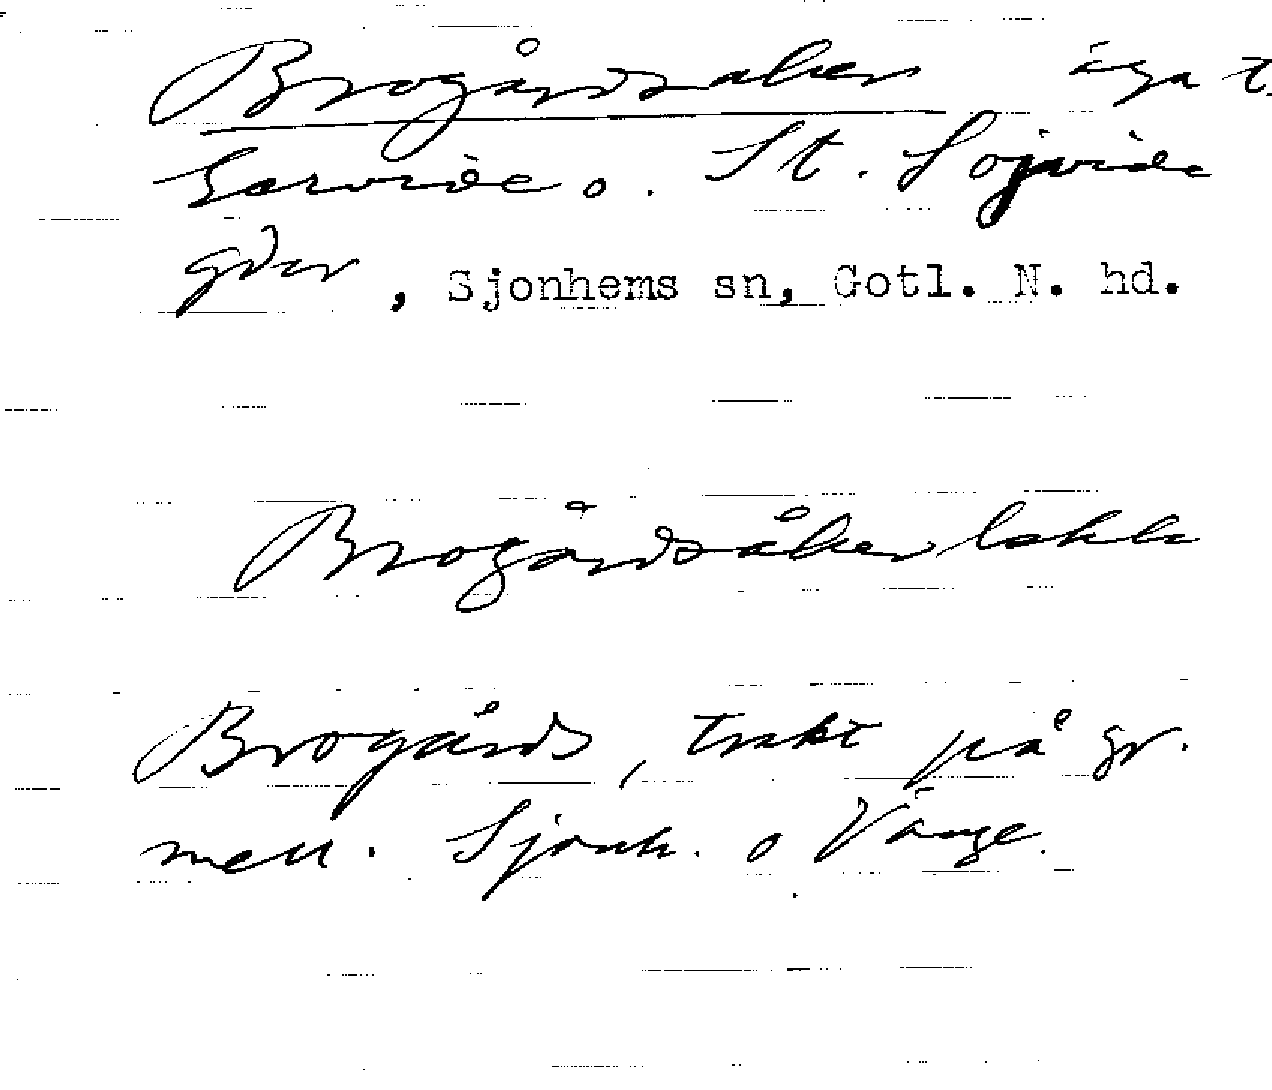 Brogårdsåker äga t.
Sarvide o. St. Sojvide
gdar, Sjonhems sn, Gotl. N. hd.
Brogårdsåkerlakk
Brogårds, trakt på gr.
mell. Sjonh. o Vänge.